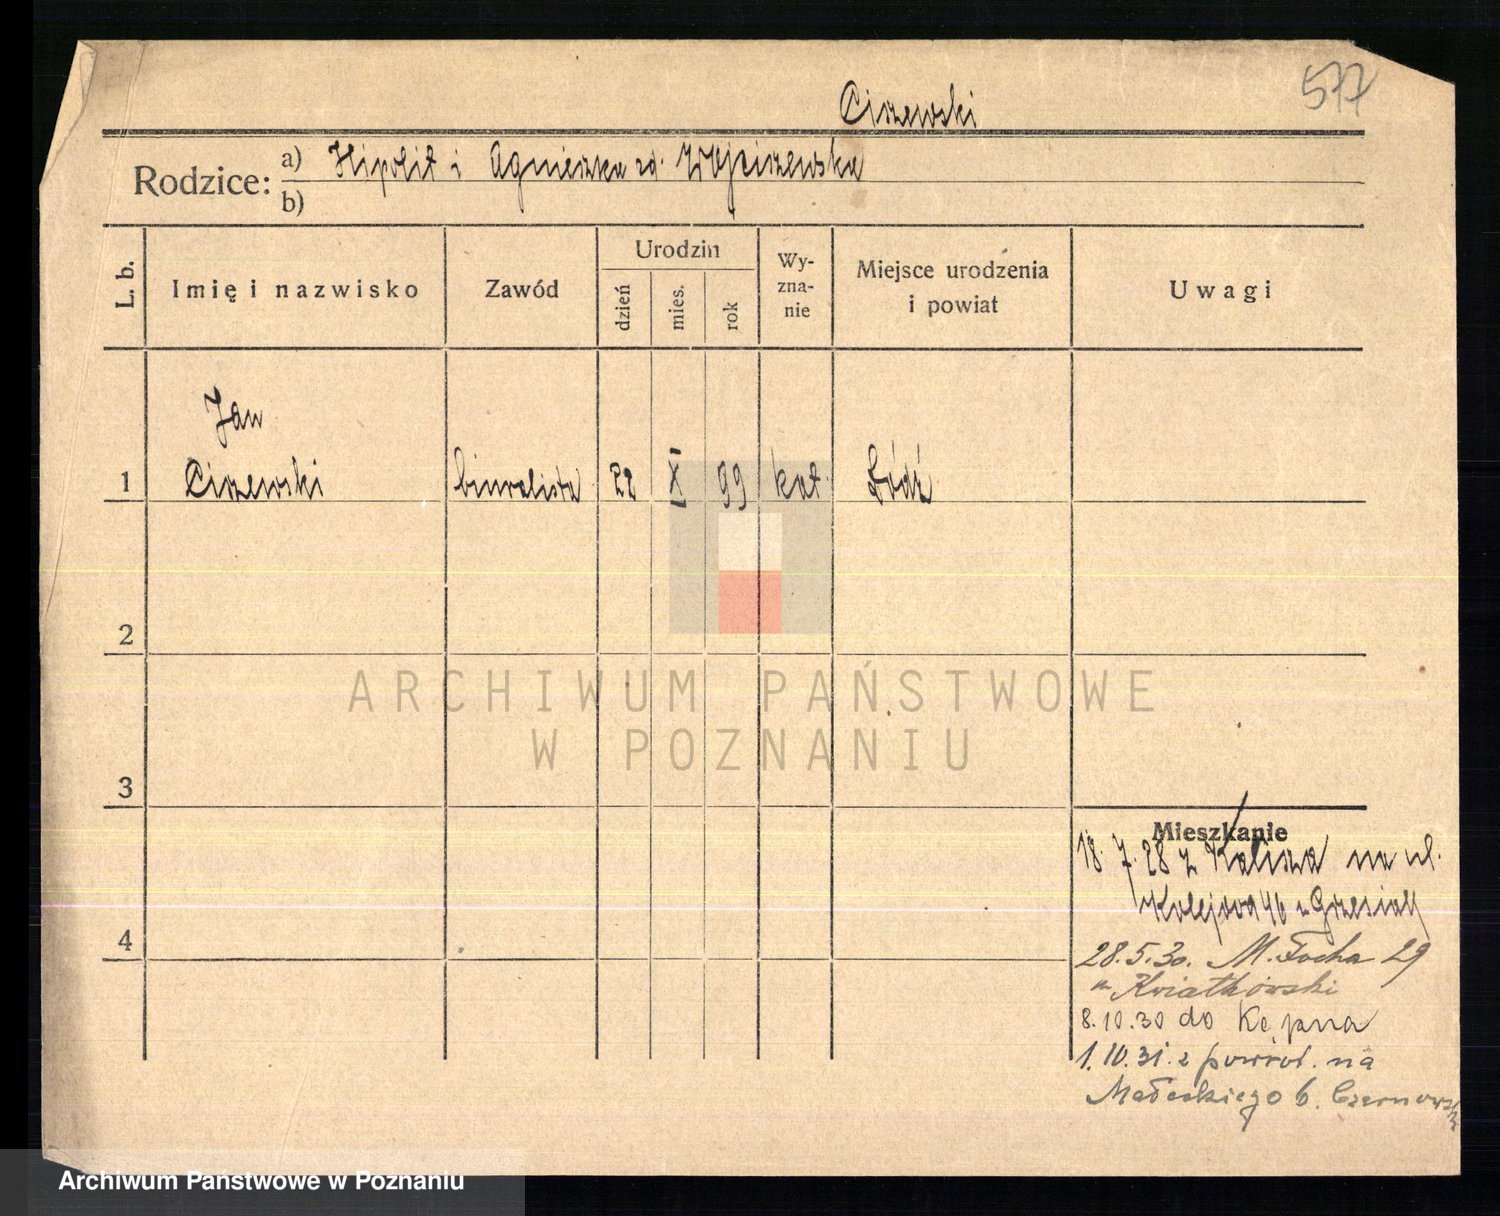 577
Ciszewski
Rodzice: a) Hipolit i Agnieszka zd. Wojciszewska
b)
L. b.
Imię i nazwisko
Zawód
Urodzin
dzień
mies.
rok
Wy-
zna-
nie
Miejsce urodzenia
i powiat
Uwagi
Jan
1 Ciszewski biuralista 22 X 99 kat. Łódź
2
ARCHIWUM PAŃSTWOWE
W POZNANIU
3
Mieszkanie
18. 7. 28 z Kalisza na ul.
Kolejowa 46 u Grzesiak
4
28.5.30. M. Focha 29
u Kwiatkowski
8.10.30 do Kępna
1.10.31. z powrot. na
Małeckiego 6.
Archiwum Państwowe w Poznaniu